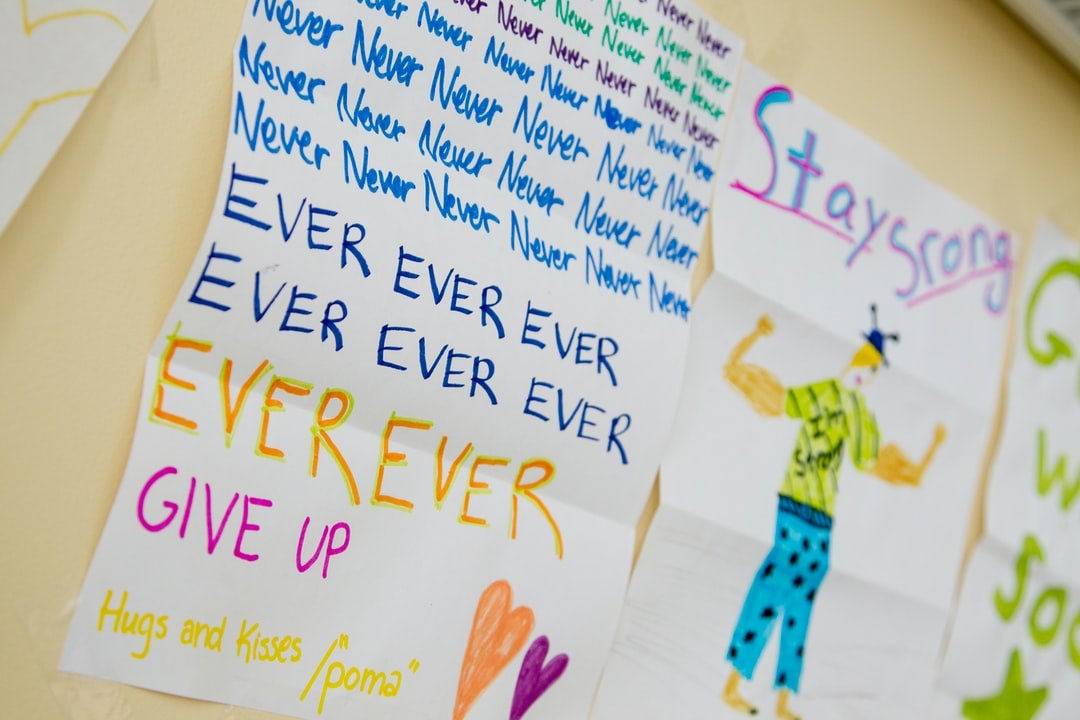 Never Never
Never Never Never
Never Never Never Never
Never Never Never Never Never
Never Never Never Never Never Never
Never Never Never Never Never Never
Never Never Never Never Never Never
Never Never Never Never Never Never
EVER EVER EVER
EVER EVER EVER
EVER EVER
GIVE UP
Hugs and Kisses /"poma"
Stay srong